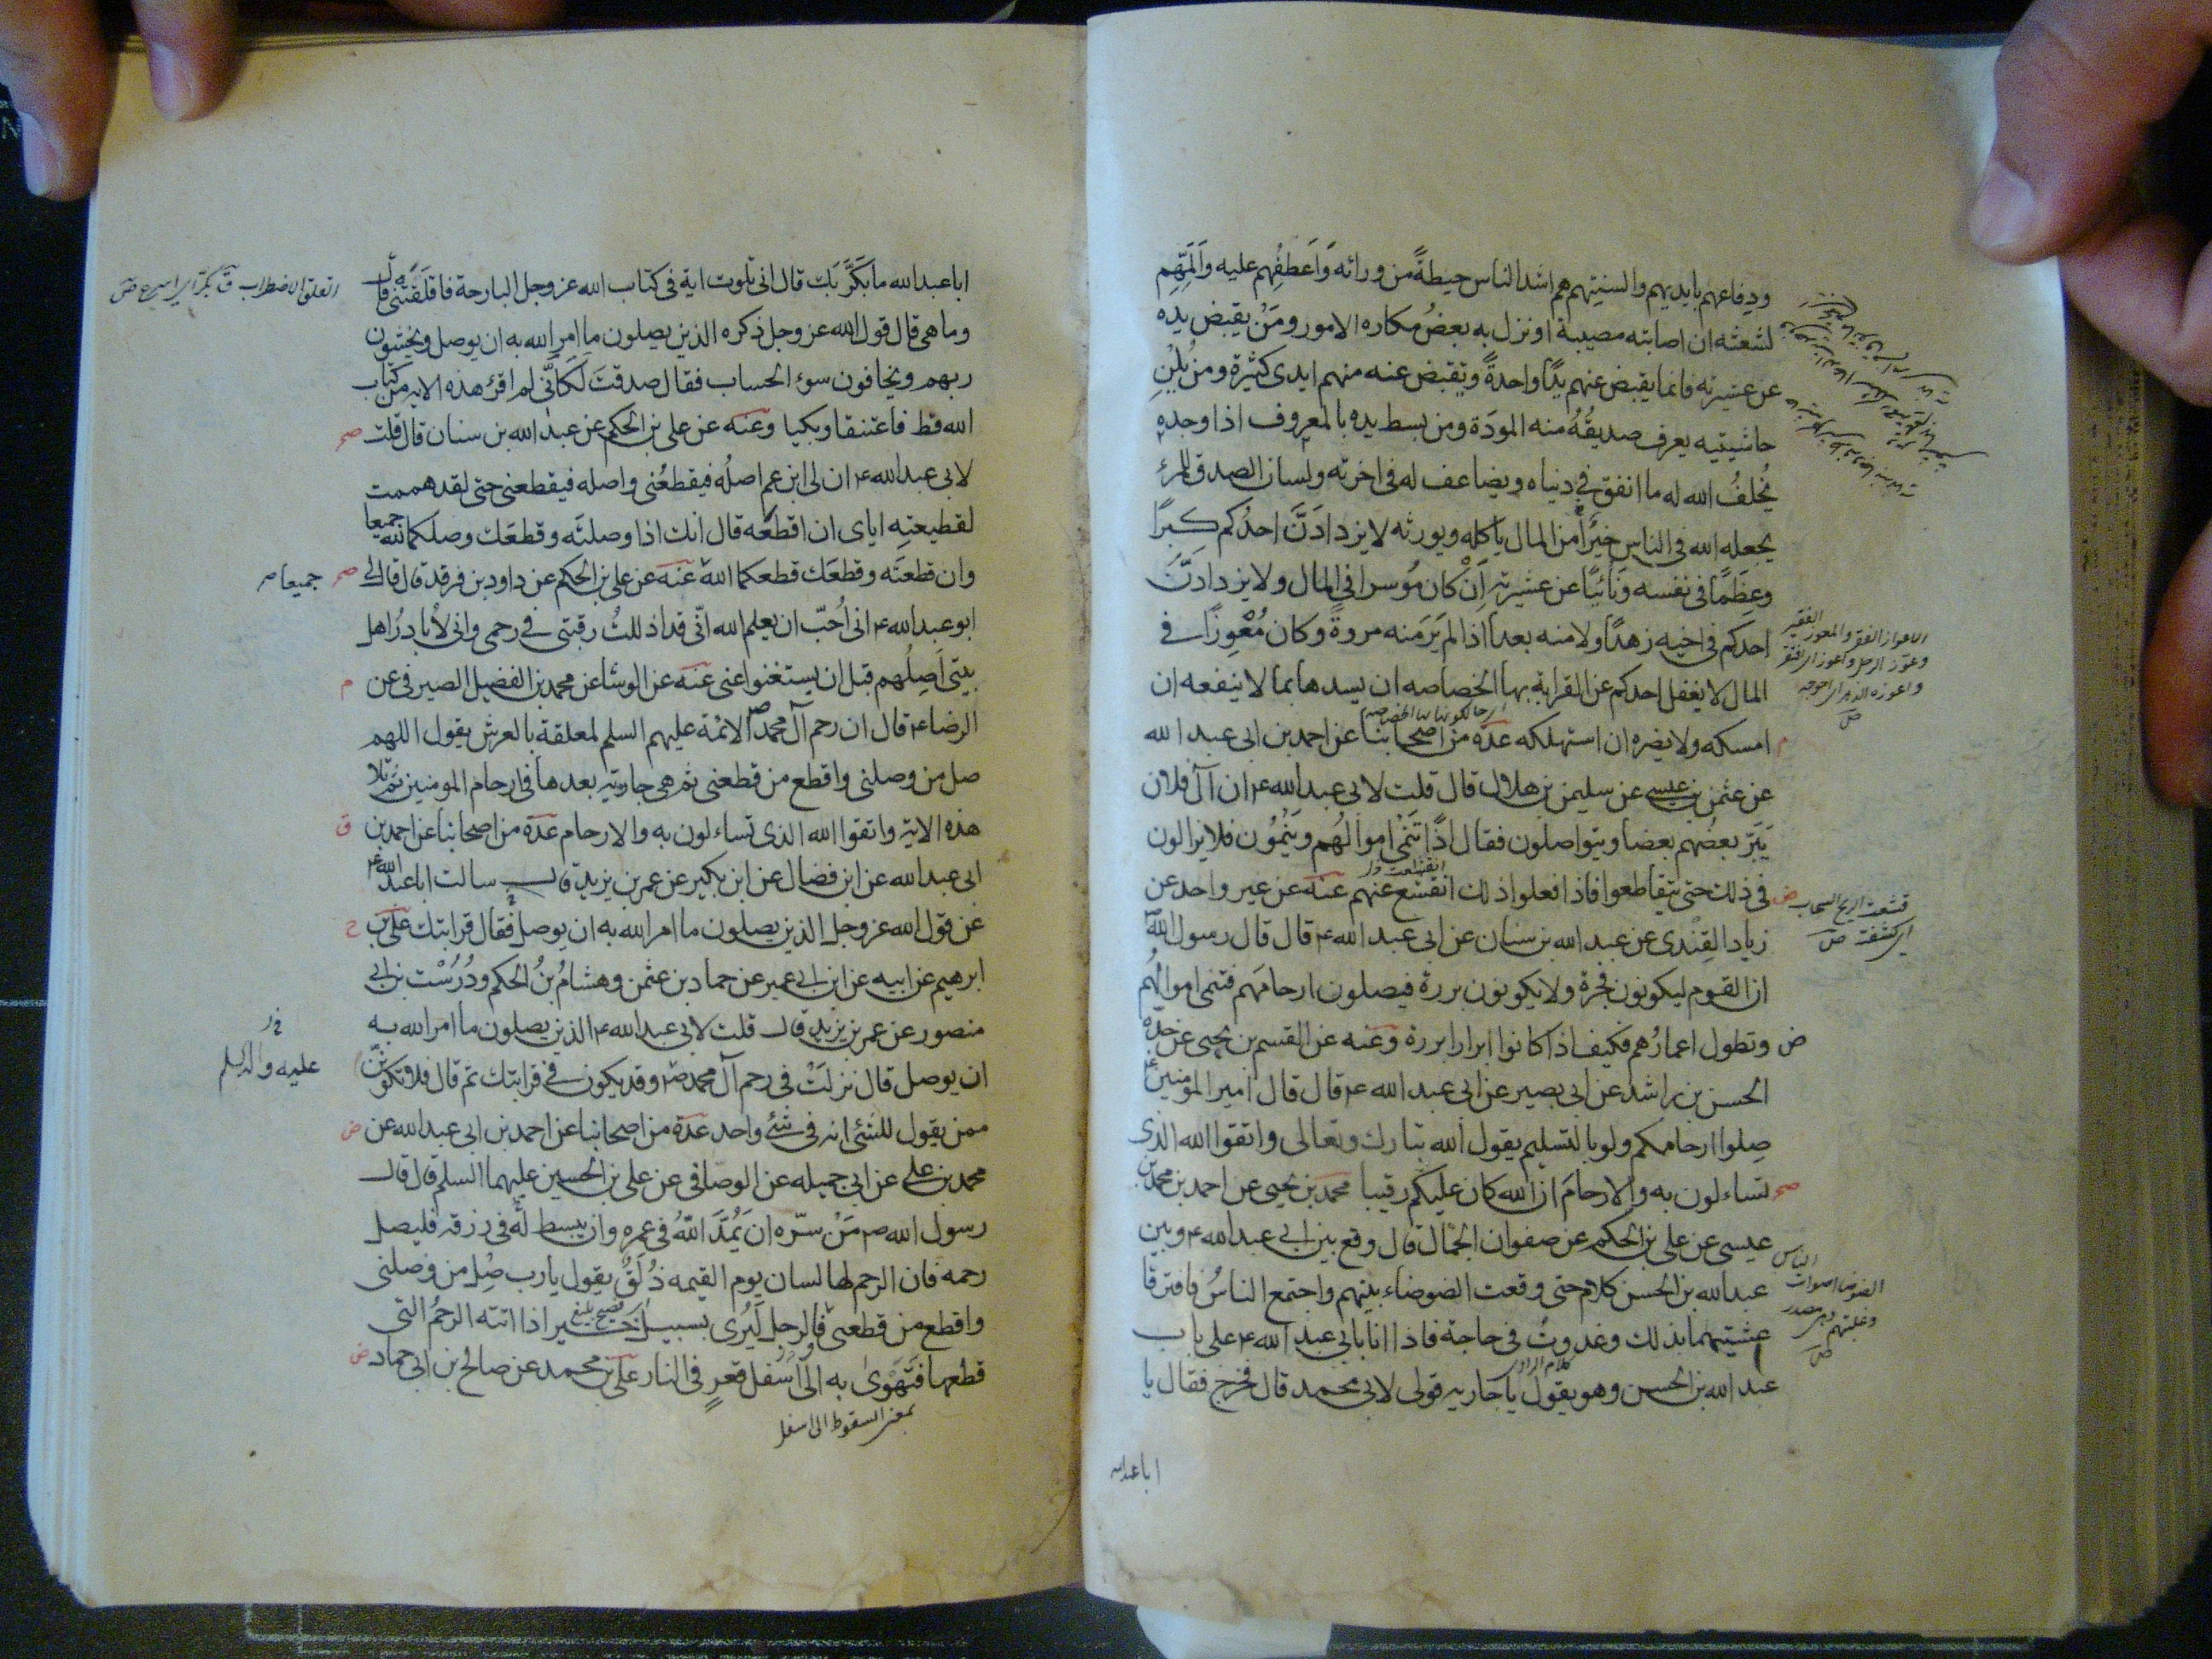 ودفاعهم بايديهم والسنتهم هم اشد الناس حيطةً من ورائه وَاَعطفُهم عليه وَاَلَمّهم
لشعثه ان اصابته مصيبة او نزل به بعضُ مكاره الامور ومَنْ يقبض يده
عن عشيرته فانما يقبض عنهم يدًا واحدةً وتقبض عنه منهم ايدى كثيرة ومن يُلِنِ
حاشيتيه يعرف صديقُهُ منه المودَة ومن بسط يده بالمعروف اذا وجده
يُخلفُ الله له ما انفق فى دنياه ويضاعف له فى اخرته ولسان الصدق للمرء
يجعله الله فى الناس خيرًا من المال ياكله ويورثه لا يزدادَنَّ احدُكم كبرًا
وعِظَمًا فى نفسه ونَائيًا عن عشيرته اَنْ كان مُوسرا فى المال ولا يزدادنَّ
احدكم فى اخيه زهدًا ولا منه بعدا اذا لم يَرَ منه مروةً وكان مُعْوِزًا فى
المال لا يغفل احدكم عن القرابة بها الخصاصه ان يسدها بما لا ينفعه ان
امسكه ولا يضره ان استهلكه عدة من اصحابنا عن احمد بن ابى عبد الله
عن عثمن بن عيسى عن سليمن بن هلال قال قلت لابى عبد الله ع ان آل فلان
يَبَرّ بعضُهم بعضا ويتواصلون فقال اذًا تَنْمى اموالهُم ويَنْمُون فلا يزالون
فى ذلك حتى يتقاطعوا فاذا فعلوا ذلك انقشع عنهم عنه عن غير واحد عن
زياد القِنْدى عن عبد الله بن سنان عن ابى عبد الله ع قال قال رسول الله ص
ان القوم ليكونون فجرة ولا يكونون بررة فيصلون ارحامَهم فتنمى اموالهُم
وتطول اعمارُهم فكيف اذا كانوا ابرارا بررة وعنه عن القسم بن يحيى عن جده
الحسن بن راشد عن ابى بصير عن ابى عبد الله ع قال قال امير المومنين ع
صِلوا ارحامكم ولو بالتسليم يقول الله تبارك وتعالى واتقوا الله الذى
تساءلون به والارحامَ ان الله كان عليكم رقيبا محمد بن يحيى عن احمد بن محمد بن
عيسى عن على بن الحكم عن صفوان الجمّال قال وقع بين ابى عبد الله ع وبين
عبد الله بن الحسن كلام حتى وقعت الضوضاء بينهم واجتمع الناسُ فافترقا
عشيتهما بذلك وغدوتُ فى حاجة فاذا انا بابى عبد الله ع على باب
عبد الله بن الحسن وهو يقول يا جاريه قولى لابى محمد قال فخرج فقال يا
ابا عبد الله
الاعواز الفقر والمعوز الفقير
وعوز الرجل واعوز اى افتقر
واعوزه الدهر اى احوجه
ص
قشعت الريح السحاب
اى كشفته ص
الضوضا اصوات الناس
وغلبتهم وهى مصدر
ص
كلام الراوى
ابا عبد الله ما بَكَّرَ بَك قال انى تلوت اية فى كتاب الله عز وجل البارحة فاقلَقَتْنى قال
وما هى قال قول الله عز وجل ذكره الذين يصلون ما امر الله به ان يوصل ويخشون
ربهم ويخافون سوء الحساب فقال صدقتَ لَكَانّى لم اقرء هذه الايه من كتاب
الله قط فاعتنقا وبكيا وعنه عن على بن الحكم عن عبد الله بن سنان قال قلت
لابى عبد الله ع ان لى ابن عم اصلُه فيقطعُنى واصله فيقطعنى حتى لقد هممت
لقطيعتِه اياى ان اقطعَه قال انك اذا وصلتَه وقطعَك وصلكما الله جميعا
وان قطعتَه وقطعَك قطعكما الله عنه عن على بن الحكم عن داود بن فرقد قال قال لى
ابو عبد الله ع انى اُحبّ ان يعلم الله انّى قد اذللتُ رقبتى فى رحمى وانى لاُبادِرُ اهل
بيتى اَصِلُهم قبل ان يستغنوا عنى عنه عن الوشا عن محمد بن الفضيل الصيرفى عن
الرضا ع قال ان رحم آل محمد ص الائمة عليهم السلم لمعلقة بالعرش يقول اللهم
صل من وصلنى واقطع من قطعنى ثم هى جارية بعدها فى ارحام المومنين ثم تلا
هذه الاية واتقوا الله الذى تساءلون به والارحام عدة من اصحابنا عن احمد بن
ابى عبد الله عن ابن فضال عن ابن بكير عن عمر بن يزيد قال سالت ابا عبد الله ع
عن قول الله عز وجل الذين يصلون ما امر الله به ان يوصل فقال قرابتك على بن
ابرهيم عن ابيه عن ابن ابى عمير عن حماد بن عثمن وهشامُ بنُ الحكم ودُرُسْت بن ابى
منصور عن عمر بن يزيد قال قلت لابى عبد الله ع الذين يصلون ما امر الله به
ان يوصل قال نزلَتْ فى رحم آل محمد ص وقد يكون فى قرابتك ثم قال فلا تكونَنّ
ممن يقول للشئ انه فى شئ واحد عدة من اصحابنا عن احمد بن ابى عبد الله عن
محمد بن على عن ابى جميله عن الوصافى عن على بن الحسين عليهما السلم قال قال
رسول الله ص مَنْ سرّه ان يَمُدَّ اللهُ فى عمره وان يبسط له فى رزقه فليصل
رحمه فان الرحم لها لسان يوم القيمه ذُلَقٌ يقول يارب صِل من وصلنى
واقطع من قطعنى فالرجل لَيُرى بسبيل خير اذا اتته الرحمُ التى
قطعها فتَهْوى به الى اَسفل قعرٍ فى النار على بن محمد عن صالح بن ابى حماد
بمعنى السقوط الى اسفل
القلق الاضطراب ق بكّر اى اسرع ص
جميعا
عليه واله السلم
فصيح بليغ